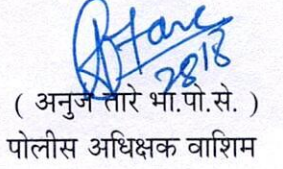 28/8
( अनुज तारे भा.पो.से. )
पोलीस अधिक्षक वाशिम